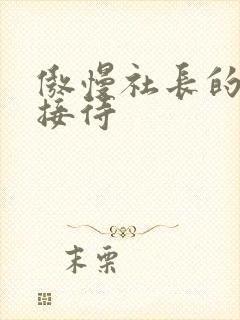 傲慢社長的
接待
末栗